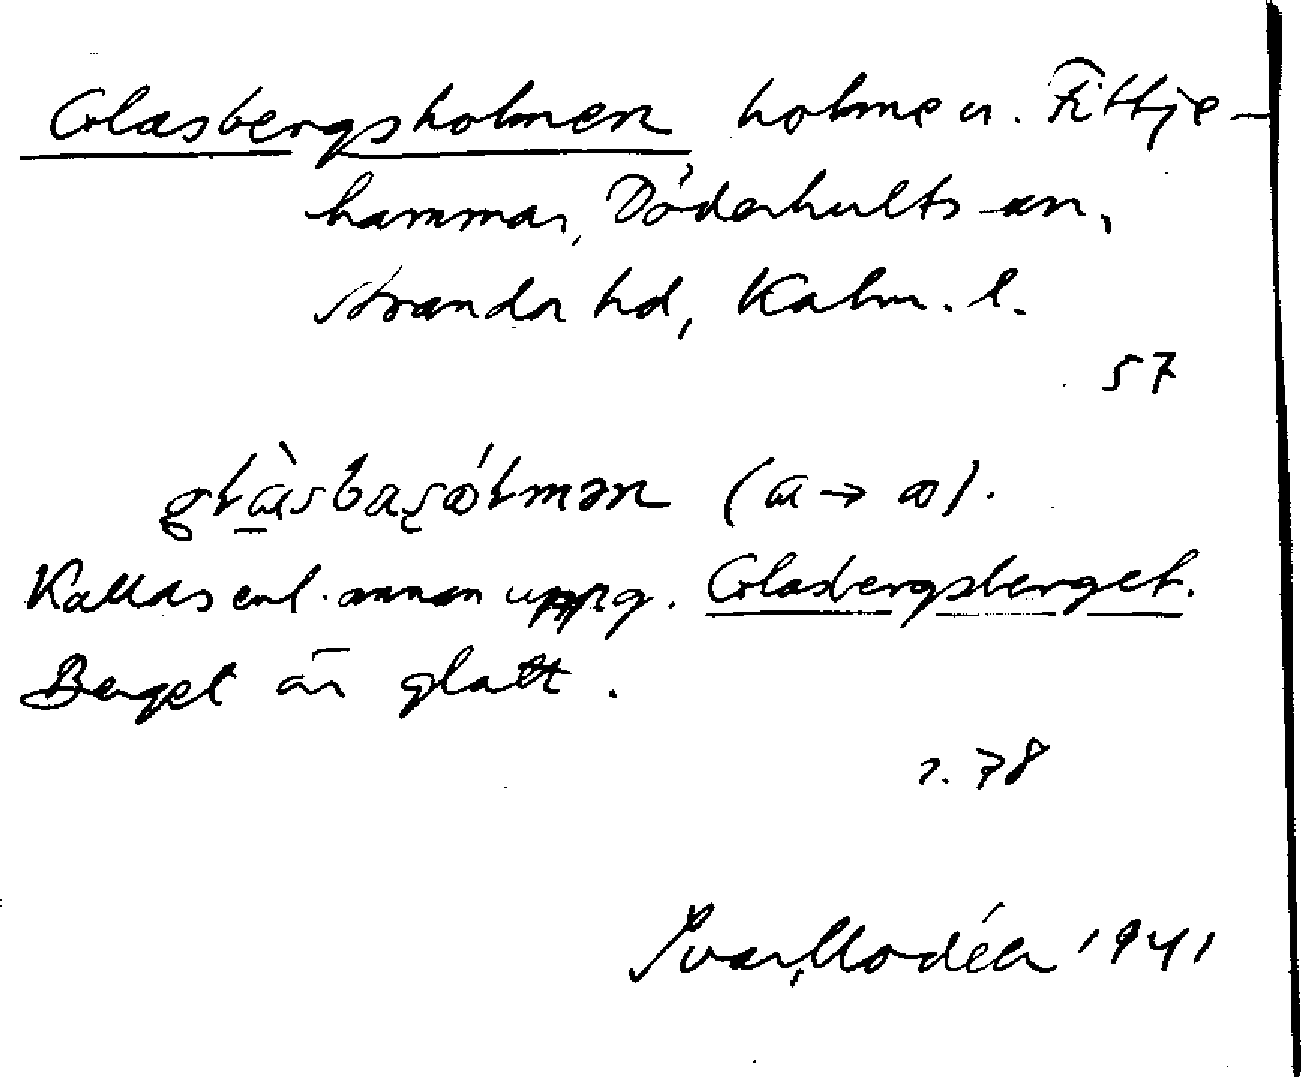 Glasbergsholmen holme u. Fittje-
hammar, Döderhults sn,
Stranda hd, Kalm. l.
57
(a → ɷ).
Kallas enl. annan uppg. Glasbergsberget.
Berget är glatt.
s. 78
Ivar Modéer 1941